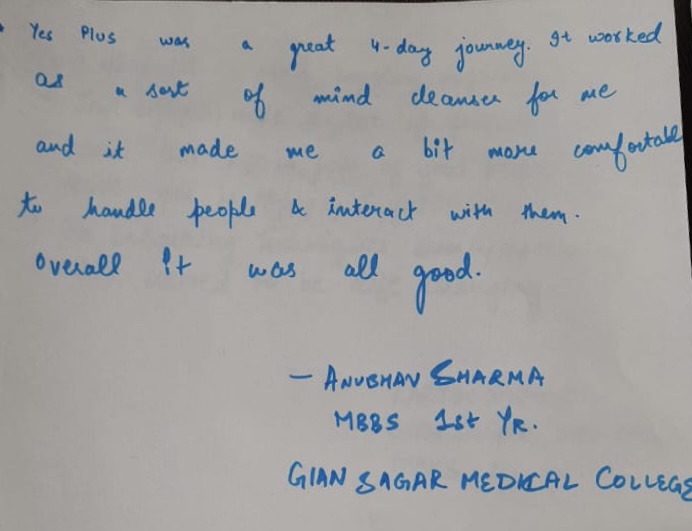 Yes Plus was a great 4-day journey. It worked
as a sort of mind cleanser for me
and it made me a bit more comfortable
to handle people & interact with them.
Overall it was all good.
— ANUBHAV SHARMA
MBBS 1st YR.
GIAN SAGAR MEDICAL COLLEGE